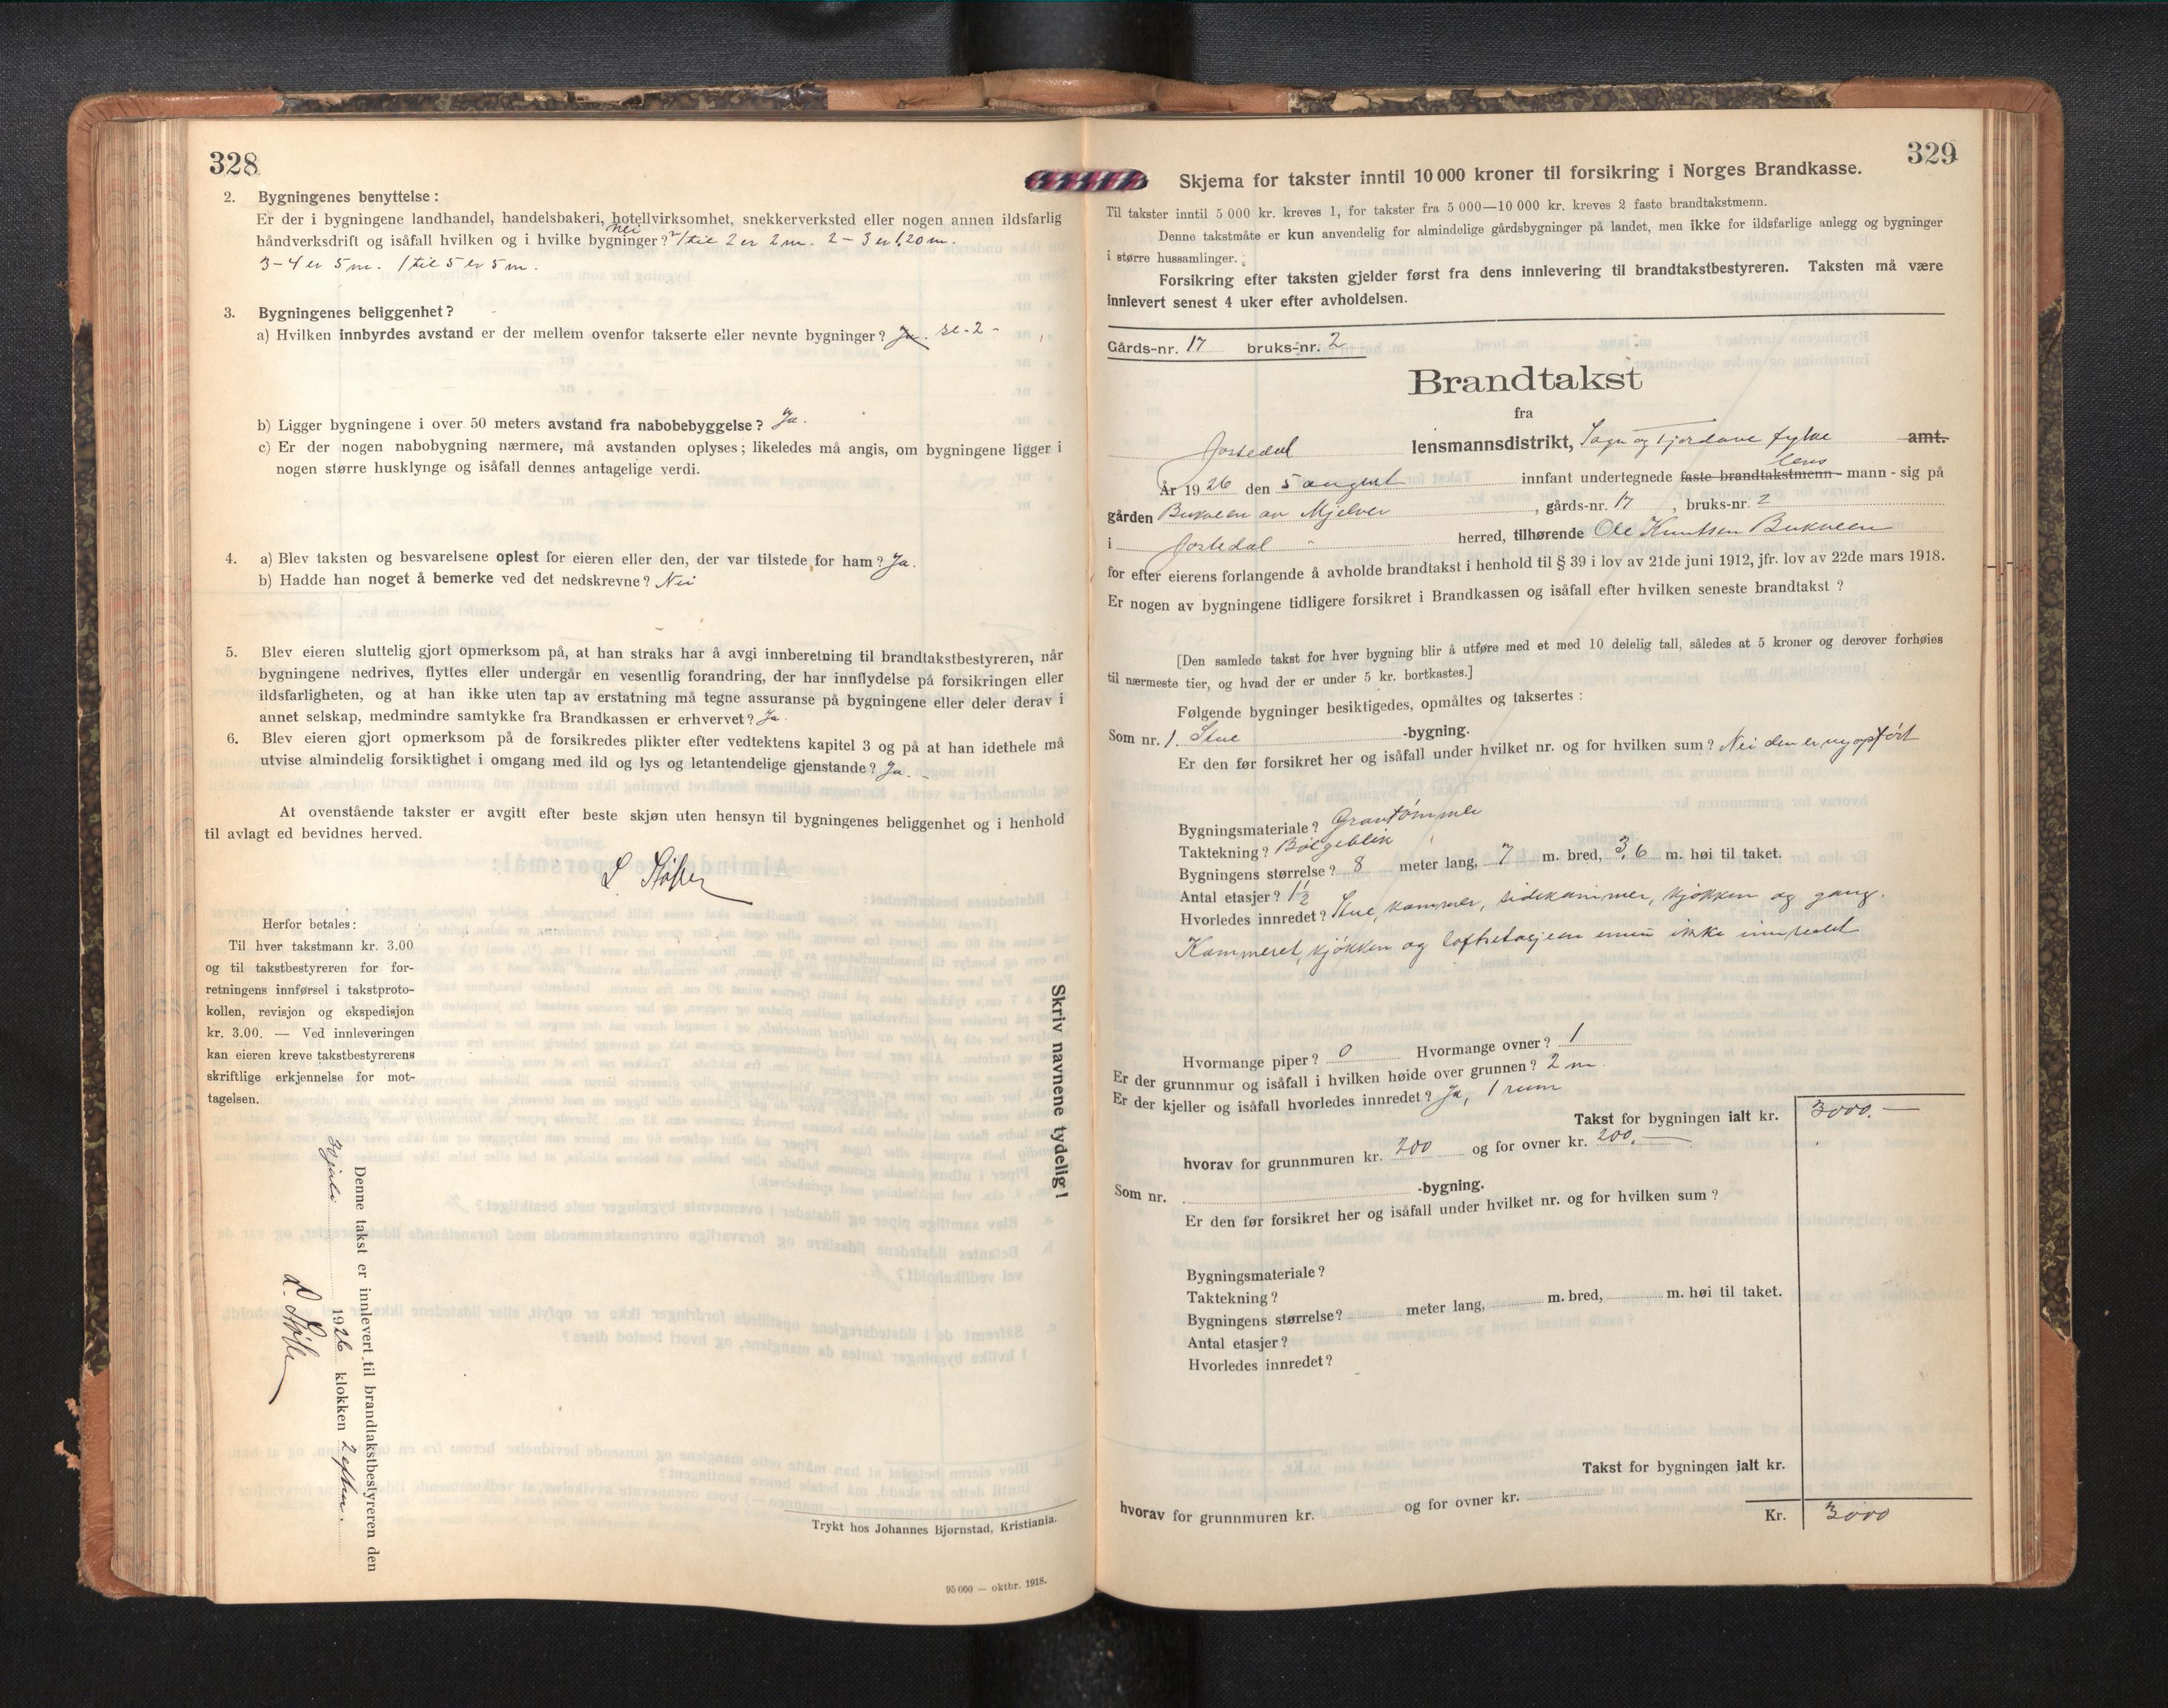 328
2. Bygningenes benyttelse:
Er der i bygningene landhandel, handelsbakeri, hotellvirksomhet, snekkerverksted eller nogen annen ildsfarlig
nei
håndverksdrift og isåfall hvilken og i hvilke bygninger? 1 til 2 er 2 m. 2 – 3 er 1,20 m.
3 – 4 er 5 m. 1 til 5 er 5 m.
3. Bygningenes beliggenhet?
a) Hvilken innbyrdes avstand er der mellem ovenfor takserte eller nevnte bygninger? Ja. se - 2 -
b) Ligger bygningene i over 50 meters avstand fra nabobebyggelse? Ja.
c) Er der nogen nabobygning nærmere, må avstanden oplyses; likeledes må angis, om bygningene ligger i
nogen større husklynge og isåfall dennes antagelige verdi.
4. a) Blev taksten og besvarelsene oplest for eieren eller den, der var tilstede for ham? Ja.
b) Hadde han noget å bemerke ved det nedskrevne? Nei
5. Blev eieren sluttelig gjort opmerksom på, at han straks har å avgi innberetning til brandtakstbestyreren, når
bygningene nedrives, flyttes eller undergår en vesentlig forandring, der har innflydelse på forsikringen eller
ildsfarligheten, og at han ikke uten tap av erstatning må tegne assuranse på bygningene eller deler derav i
annet selskap, medmindre samtykke fra Brandkassen er erhvervet? Ja.
6. Blev eieren gjort opmerksom på de forsikredes plikter efter vedtektens kapitel 3 og på at han idethele må
utvise almindelig forsiktighet i omgang med ild og lys og letantendelige gjenstande? Ja.
At ovenstående takster er avgitt efter beste skjøn uten hensyn til bygningenes beliggenhet og i henhold
til avlagt ed bevidnes herved.
Herfor betales:
Til hver takstmann kr. 3.00
og til takstbestyreren for for-
retningens innførsel i takstproto-
kollen, revisjon og ekspedisjon
kr. 3.00. — Ved innleveringen
kan eieren kreve takstbestyrerens
skriftlige erkjennelse for mot-
tagelsen.
Denne takst er innlevert til brandtakstbestyreren den
30 juli 1926 klokken 2 efterm.
Skriv navnene tydelig!
Trykt hos Johannes Bjørnstad, Kristiania.
95 000 — oktbr. 1918.
329
Skjema for takster inntil 10 000 kroner til forsikring i Norges Brandkasse.
Til takster inntil 5 000 kr. kreves 1, for takster fra 5 000—10 000 kr. kreves 2 faste brandtakstmenn.
Denne takstmåte er kun anvendelig for almindelige gårdsbygninger på landet, men ikke for ildsfarlige anlegg og bygninger
i større hussamlinger.
Forsikring efter taksten gjelder først fra dens innlevering til brandtakstbestyreren. Taksten må være
innlevert senest 4 uker efter avholdelsen.
Gårds-nr. 17 bruks-nr. 2
Brandtakst
fra
Jostedal lensmannsdistrikt, Sogn og Fjordane fylke amt.
lens
År 1926 den 5 august innfant undertegnede faste brandtakstmenn - mann - sig på
gården Bukveen av Mjelver, gårds-nr. 17, bruks-nr. 2
i Jostedal herred, tilhørende Ole Knutsen Bukveen
for efter eierens forlangende å avholde brandtakst i henhold til § 39 i lov av 21de juni 1912, jfr. lov av 22de mars 1918.
Er nogen av bygningene tidligere forsikret i Brandkassen og isåfall efter hvilken seneste brandtakst?
[Den samlede takst for hver bygning blir å utføre med et med 10 delelig tall, således at 5 kroner og derover forhøies
til nærmeste tier, og hvad der er under 5 kr. bortkastes.]
Følgende bygninger besiktigedes, opmåltes og taksertes:
Som nr. 1. Stue -bygning.
Er den før forsikret her og isåfall under hvilket nr. og for hvilken sum? Nei den er nyopført
Bygningsmateriale? Grantømmer
Taktekning? Bølgeblik
Bygningens størrelse? 8 meter lang, 7 m. bred, 3,6 m. høi til taket.
Antal etasjer? 1½
Hvorledes innredet? Stue, kammer, sidekammer, kjøkken og gang.
Kammeret, kjøkken og loftsetasjeen ennu ikke innredet
Hvormange piper? 0 Hvormange ovner? 1
Er der grunnmur og isåfall i hvilken høide over grunnen? 2 m.
Er der kjeller og isåfall hvorledes innredet? Ja, 1 rum
Takst for bygningen ialt kr. 3000.—
hvorav for grunnmuren kr. 200 og for ovner kr. 200.—
Som nr. -bygning.
Er den før forsikret her og isåfall under hvilket nr. og for hvilken sum?
Bygningsmateriale?
Taktekning?
Bygningens størrelse? meter lang, m. bred, m. høi til taket.
Antal etasjer?
Hvorledes innredet?
Takst for bygningen ialt kr.
hvorav for grunnmuren kr. og for ovner kr.
Kr. 3000